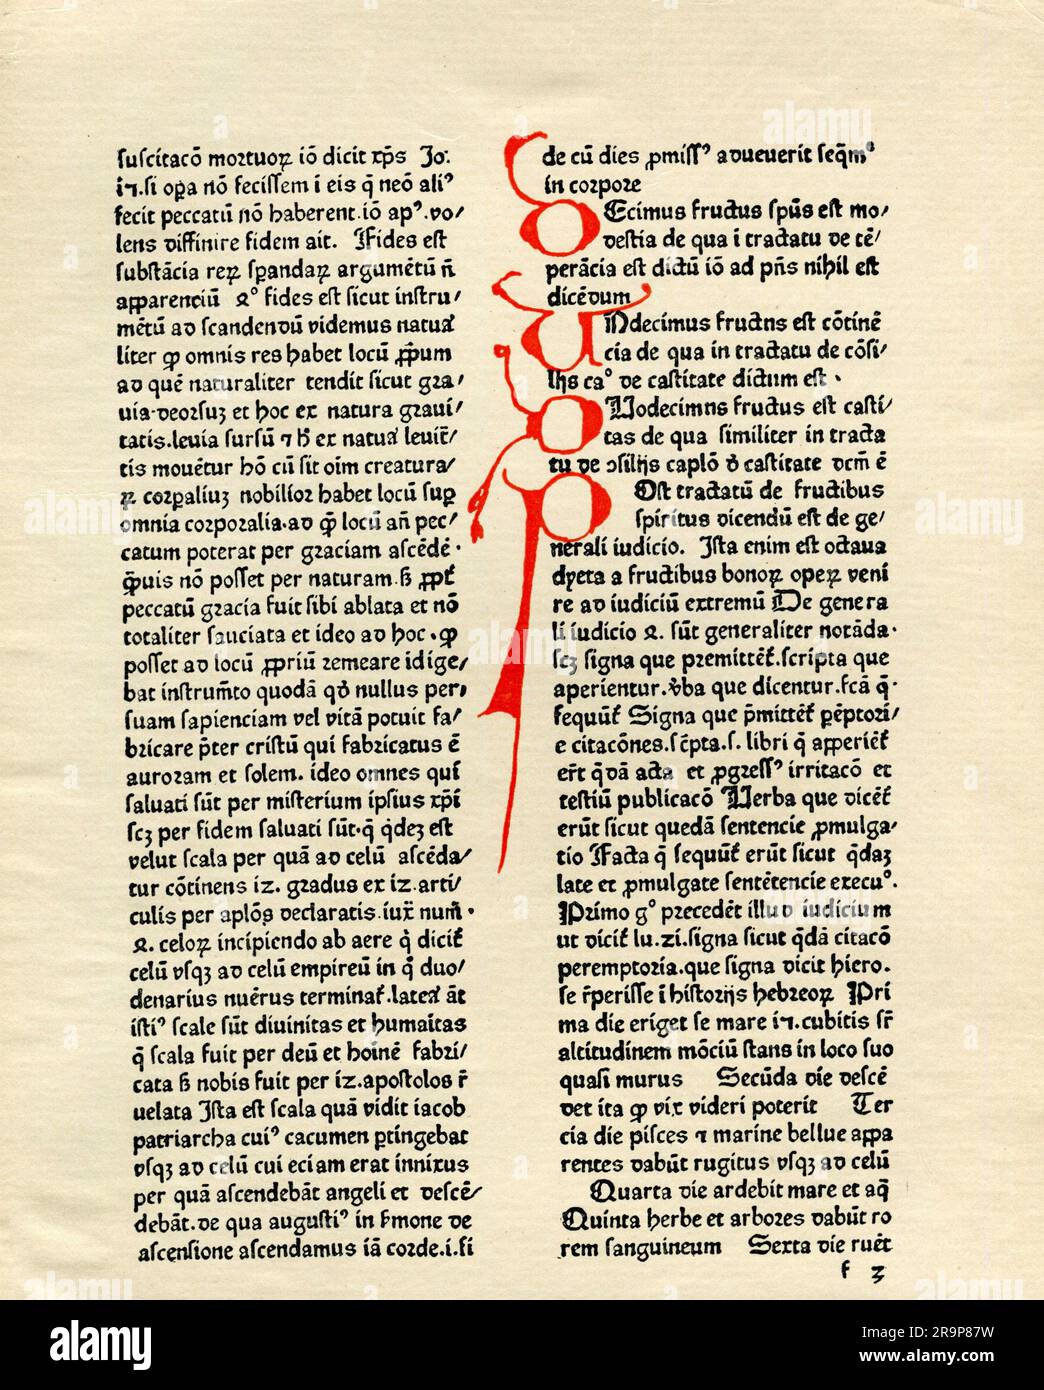 suscitacō mortuoꝝ iō dicit xp̄s Jo.
i7.si oꝑa nō fecissem i eis q̄ neō ali⁹
fecit peccatū nō haberent.iō ap⁹.vo/
lens diffinire fidem ait. Fides est
substācia reꝝ sꝑandaꝝ argumētū n̄
apparenciū ⁊° fides est sicut instru/
mētū ad scandendū videmus natua
liter ꝙ omnis res habet locū ꝓpum
ad quē naturaliter tendit sicut gra/
uia.deorsuꝫ et hoc ex natura graui/
tatis.leuia sursū ⁊ h̄ ex natua leuit̄/
tis mouētur hō cū sit oīm creatura/
ꝝ corꝑaliuꝫ nobilior habet locū suꝑ
omnia corporalia.ad ꝙ locū an̄ pec/
catum poterat per graciam ascēdē.
ꝙuis nō posset per naturam.ß ꝓpt̄
peccatū gracia fuit sibi ablata et nō
totaliter sauciata et ideo ad hoc.ꝙ
posset ad locū ꝓpriū remeare idige/
bat instrum̄to quodā qd̄ nullus per/
suam sapienciam vel vitā potuit fa/
bricare p̄ter cristū qui fabricatus ē
auroram et solem. ideo omnes qui
saluati sūt per misterium ipsius xp̄i
scꝫ per fidem saluati sūt.q̄ q̄deꝫ est
velut scala per quā ad celū ascēda/
tur cōtinens i2. gradus ex i2.arti/
culis per aplōꝝ declaratis.iux̄ num̄.
⁊. celoꝝ incipiendo ab aere q̄ dicit̄
celū vsqꝫ ad celū empireū in q̄ duo/
denarius nuērus terminat̄.latea āt
isti⁹ scale sūt diuinitas et humaitas
q̄ scala fuit per deū et hoīnē fabri/
cata ß nobis fuit per i2.apostolos r̄
uelata Ista est scala quā vidit iacob
patriarcha cui⁹ cacumen ꝑtingebat
vsqꝫ ad celū cui eciam erat innixus
per quā ascendebāt angeli et descē/
debāt.de qua augusti⁹ in s̄mone de
ascensione ascendamus iā corde.i.si
de cū dies ꝓmiss⁹ aduenerit seq̄m⁹
in corpore
DEcimus fructus sp̄us est mo/
destia de qua i tractatu de tē/
perācia est dictū iō ad p̄ns nihil est
dicēdum
UNdecimus fructus est cōtinē
cia de qua in tractatu de cōsi/
lijs ca° de castitate dictum est .
DUodecimns fructus est casti/
tas de qua similiter in tracta
tu de ↄsilijs caplō d̄ castitate dcm̄ ē
POst tractatū de fructibus
spiritus dicendū est de ge/
nerali iudicio. Ista enim est octaua
dyeta a fructibus bonoꝝ opeꝝ veni
re ad iudiciū extremū De genera
li iudicio ⁊. sūt generaliter notāda.
scꝫ signa que premittēt̄.scripta que
aperientur.v̄ba que dicentur.fcā q̄.
sequūt̄ Signa que p̄mittēt̄ ꝑēptori/
e citacōnes.sc̄pta.s. libri q̄ apperiēt̄
er̄t q̄dā acta et ꝓgress⁹ irritacō et
testiū publicacō Uerba que dicēt̄
erūt sicut quedā sentencie ꝓmulga/
tio Facta q̄ sequūt̄ erūt sicut q̄daꝫ
late et ꝓmulgate sentētencie execu°.
Primo g° precedēt illud iudicium
ut dicit̄ lu.2i.signa sicut q̄dā citacō
peremptoria.que signa dicit hiero.
se r̄perisse i historijs hebreoꝝ Pri
ma die eriget se mare i7.cubitis sr̄
altitudinem mōciū stans in loco suo
quasi murus Secūda die descē
det ita ꝙ vix videri poterit Ter
cia die pisces ⁊ marine bellue appa
rentes dabūt rugitus vsqꝫ ad celū
Quarta die ardebit mare et aq̄
Quinta herbe et arbores dabūt ro
rem sanguineum Sexta die ruēt
f 3
alamy
Image ID: 2R9P87W
www.alamy.com